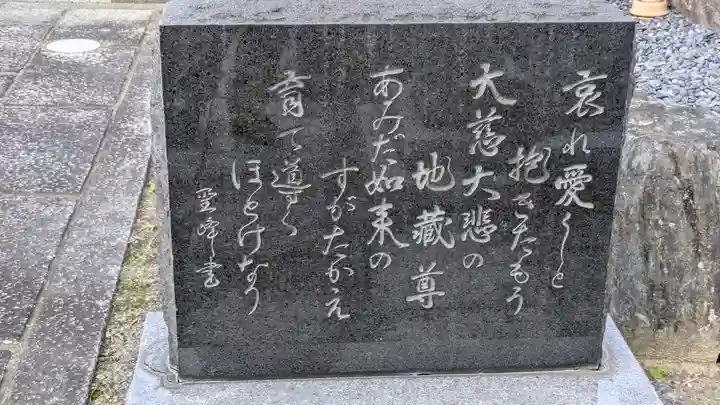 哀れ愛くしと
抱きたもう
大慈大悲の
地藏尊
あみだ如来の
すがたかえ
育て導く
ほとけなり
聖峰書